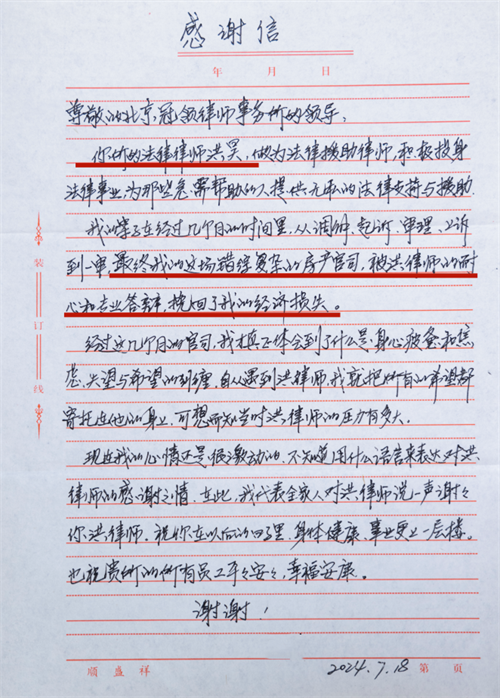 感谢信
年 月 日
尊敬的北京冠领律师事务所的领导:
你所的法律律师洪昊,做为法律援助律师,积极投身
法律事业,为那些急需帮助的人提供无私的法律支持与援助.
我的案子在经过几个月的时间里,从调解、起诉、审理、上诉
到一审,最终我的这场错综复杂的房产官司,被洪律师的耐
心和专业答辩,挽回了我的经济损失。
经过这几个月的官司,我真正体会到了什么是身心疲惫和焦
虑,失望与希望的纠缠,自从遇到洪律师,我就把所有的希望都
寄托在他的身上,可想而知当时洪律师的压力有多大。
现在我的心情还是很激动的,不知道用什么语言来表达对洪
律师的感谢之情,在此,我代表全家人对洪律师说一声谢谢
你洪律师。祝你在以后的日子里,身体健康,事业更上一层楼。
也祝贵所的所有员工平平安安,幸福安康。
谢谢!
2024.7.18
顺盛祥 第 页
装
订
线